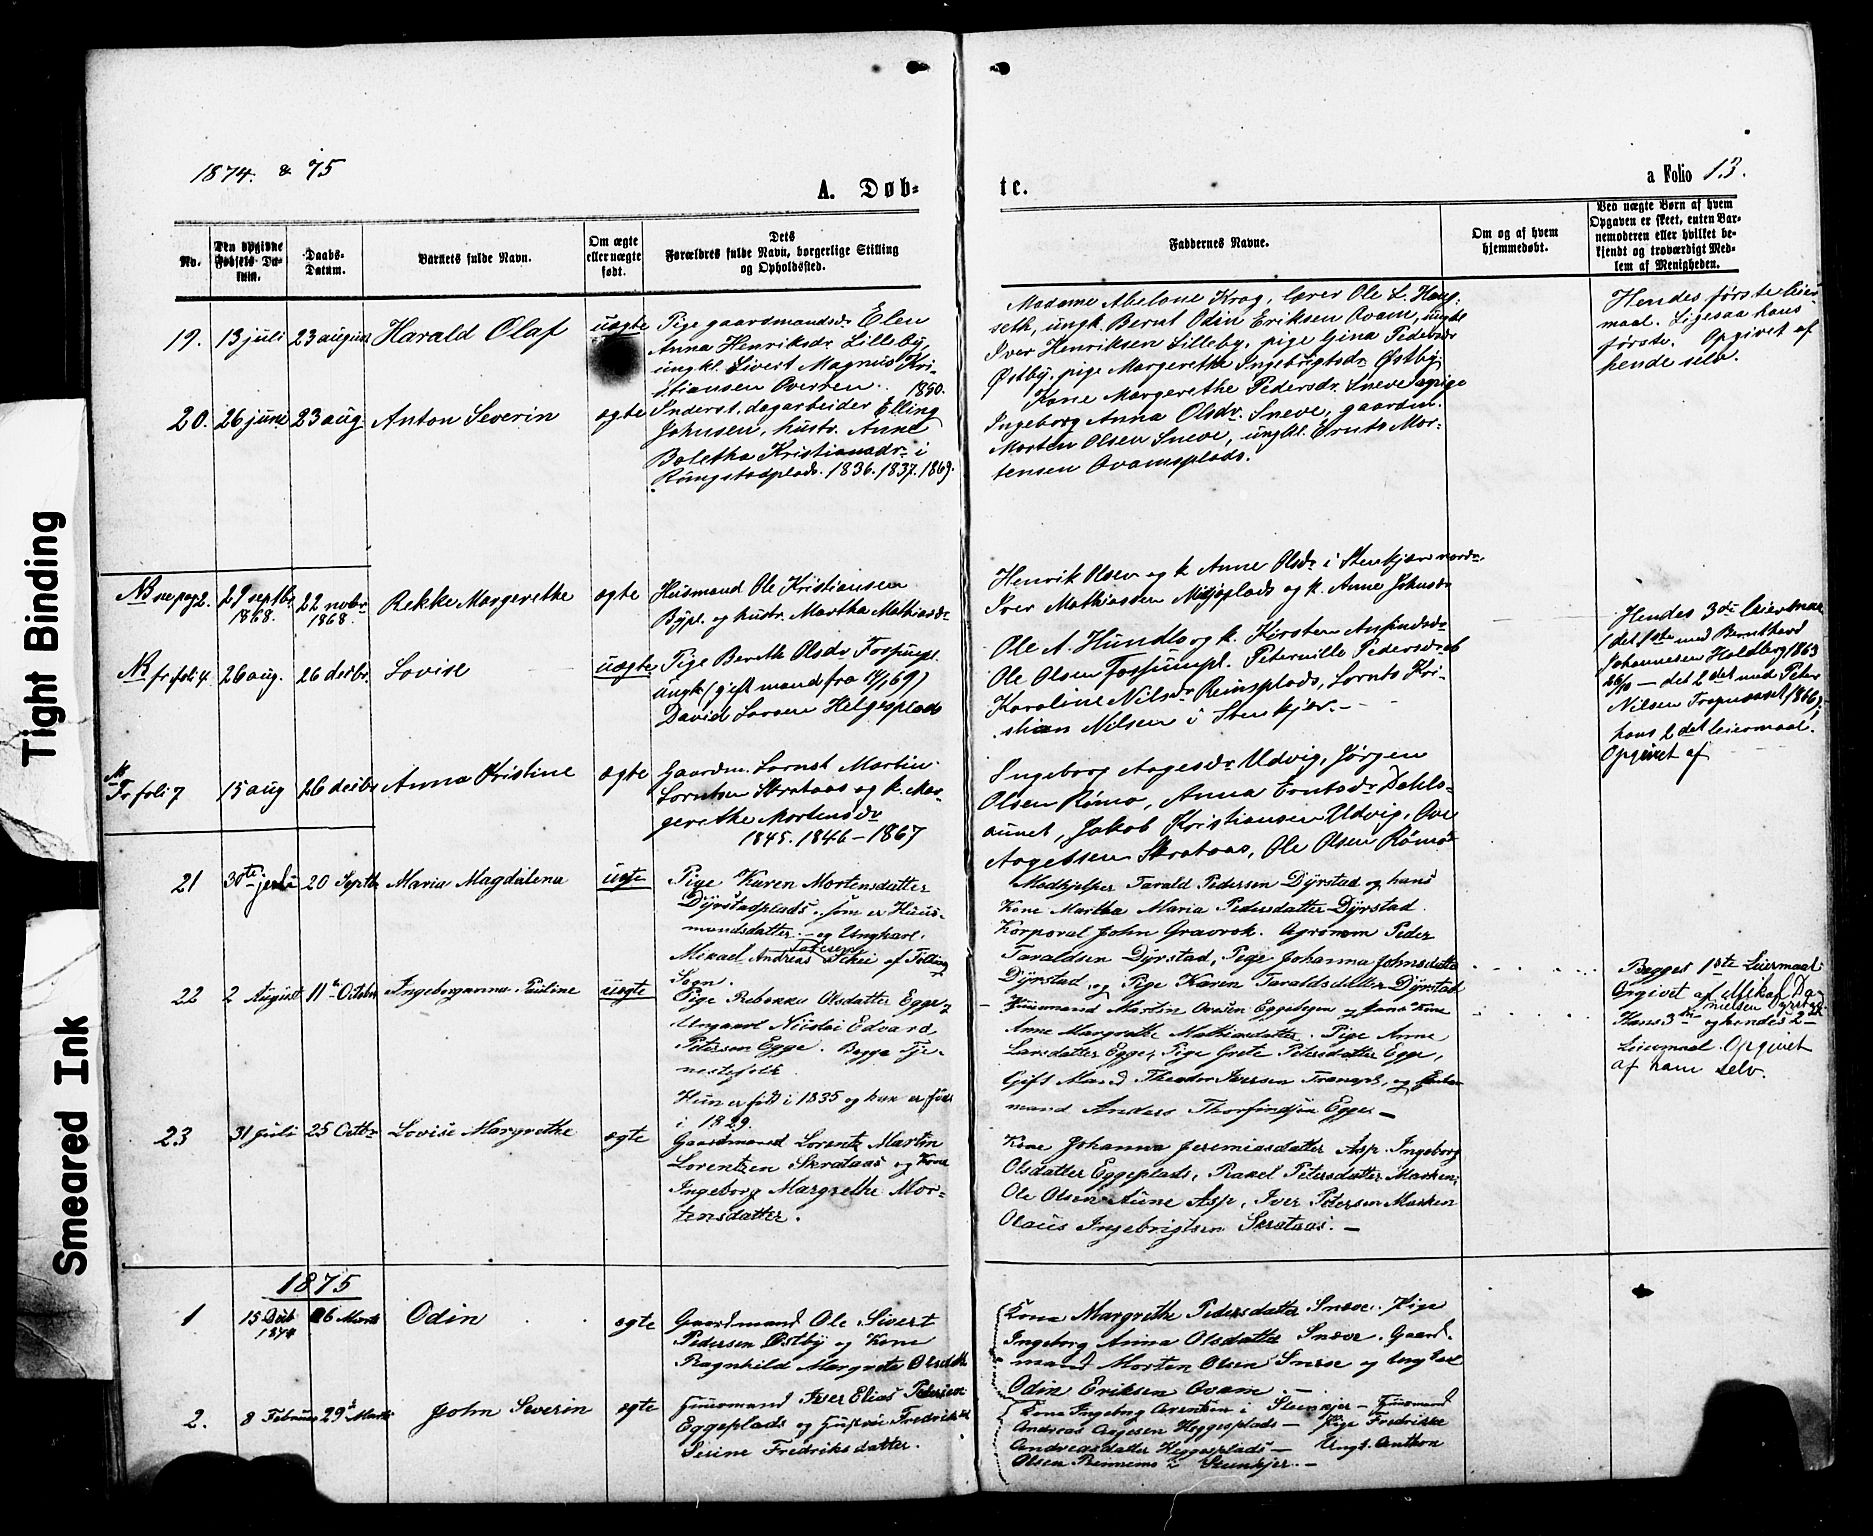 1874. & 75
A. Døb-
te.
a Folio 13.
No.
Den opgivne Fødsels Datum.
Daabs-Datum.
Barnets fulde Navn.
Om ægte eller uægte født.
Dets Forældres fulde Navn, borgerlige Stilling og Opholdssted.
Faddernes Navne.
Om og af hvem hjemmedøbt.
Ved uægte Børn af hvem Opgaven er skeet, enten Barnemoderen eller hvilket bekjendt og troværdigt Medlem af Menigheden.
19. 13 juli 23 august Harald Olaf uægte
Pige gaardmandsdr. Elen
Anna Henriksdr Lilleby,
ungkl. Sivert Magnus Kri-
stiansen Overren. 1850.
Madame Abelone Krog, lærer Ole L. Haug-
seth, ungk. Bernt Odin Eriksen Qvam, ungk
Iver Henriksen Lilleby, pige Gina Pedersdr
Østby, pige Margerethe Ingebrigtsdr Østby.
Hendes første leier
maal. Ligesaa hans
første. Opgivet af
hende selv.
20. 26 june 23 aug. Anton Severin ægte
Inderst, dagarbeider Elling
Johnsen, hustr. Anne
Boletha Kristiansdr. i
Rungstadplads. 1836. 1837. 1869.
Kone Margerethe Pedersdr. Sneve, pige
Ingeborg Anna Olsdr. Sneve, gaardm.
Morten Olsen Sneve, ungkl. Ernts Mor-
tensen Qvamsplads.
NB se pag 2. 29 septbr 1868. 22 novbr 1868. Rekke Margerethe ægte
Husmand Ole Kristiansen
Bypl. og hustr. Martha Mathiasdr
Henrik Olsen og k. Anne Olsdr i Stenkjær
Iver Mathiassen Misjøplads og k. Anne Johnsdr
NB fr foli 4. 26 aug. 26 decbr. Lovise uægte
Pige Berith Olsdr Fossumpl.
ungk (gift mand fra 69)
David Larsen Helgesplads
Ole A. Hundlo og k. Kirsten
Ole Olsen Fossumpl. Peterville Pedersdr
Karoline Nilsdr Reinsplads, Lornts Kri-
stian Nilsen i Stenkjær.
Hendes 3die leiermaal
(det 1ste med Bernthard
Johannesen Holdberg 1863
— det 2det med Peter
Nilsen 1866)
hans 2det leiermaal.
Opgivet af
NB Fr foli 7 15 aug 26 decbr Anna Kristine ægte
Gaardm. Lornst Martin
Lorntsen Skrataas og k. Mar-
gerethe Mortensdr
1845. 1846 — 1867
Ingeborg Aagesdr Udvig, Jørgen
Olsen Rømo, Anna Erntsdr Dahls-
aunet, Jakob Kristiansen Udvig, Ove
Aagessen Skrataas, Ole Olsen Rømo
21 30te juli 20 Septbr Maria Magdalena uægte
Pige Karen Mortensdatter
Dyrstadplads, som er Huus-
mandsdatter. og Ungkarl.
Mikael Andreas Tørresen Skei af Følling
Sogn.
Medhjelper Tarald Pedersen Dyrstad og hans
Kone Martha Maria Pedersdatter Dyrstad.
Korporal John Gravrok. Agronom Peder
Taraldsen Dyrstad, Pige Johanna Johnsdatter
Dyrstad, og Pige Karen Taraldsdatter Dyrstad
Begges 1ste Leiermaal
Opgivet af Mikal Da-
nielsen Dyrstad
22 2 August 11te Octobr Ingeborganna Pauline uægte
Pige Rebekka Olsdatter Egge,
Ungkarl Nicolai Edvard
Petersen Egge. Begge Tje-
nestefolk
Hun er født i 1835 og han er født
i 1829.
Huusmand Martin Ovesen Eggebygen og hans Kone
Anne Margrethe Mathiasdatter. Pige Anne
Larsdatter Egge, Pige Grete Petersdatter Egge,
Gift Mand Theodor Iversen Tranapl, og
mand Anders Thorfindsen Egge. —
Hans 3die og hendes 2det
Leiermaal. Opgivet
af ham selv.
23 31 juli 25 Octbr Lovise Margrethe ægte
Gaardmand Lorentz Martin
Lorentzen Skrataas og Kone
Ingeborg Margrethe Mor-
tensdatter.
Kone Johanna Jeremiasdatter Asp. Ingeborg
Olsdatter Eggeplads, Rakel Petersdatter Masken,
Ole Olsen Aune Asp, Iver Petersen Masken
Olaus Ingebrigtsen Skrataas. —
1875
1 15 Decb 1874 26 Marts Odin ægte
Gaardmand Ole Sivert
Pedersen Østby og Kone
Ragnhild Margrete Olsdatt
Kone Margrethe Pedersdatter Sneve. Pige
Ingeborg Anna Olsdatter Sneve. Gaard-
mand Morten Olsen Sneve og Ungkarl
Odin Eriksen Qvam. —
2. 8 Februar 29 Marts John Severin ægte
Huusmand Iver Elias Petersen
Eggeplads og Hustru Fredrikke
Serine Fredriksdatter.
Kone Ingeborg Arentsen i Steinkjer — Huusmand
Andreas Aagesen Heggesplads — Pige Fredrikke
Andreasdatter Heggesplads — Ungk. Anthon
Olsen Rennems i Steinkjer. —
Tight Binding
Smeared Ink